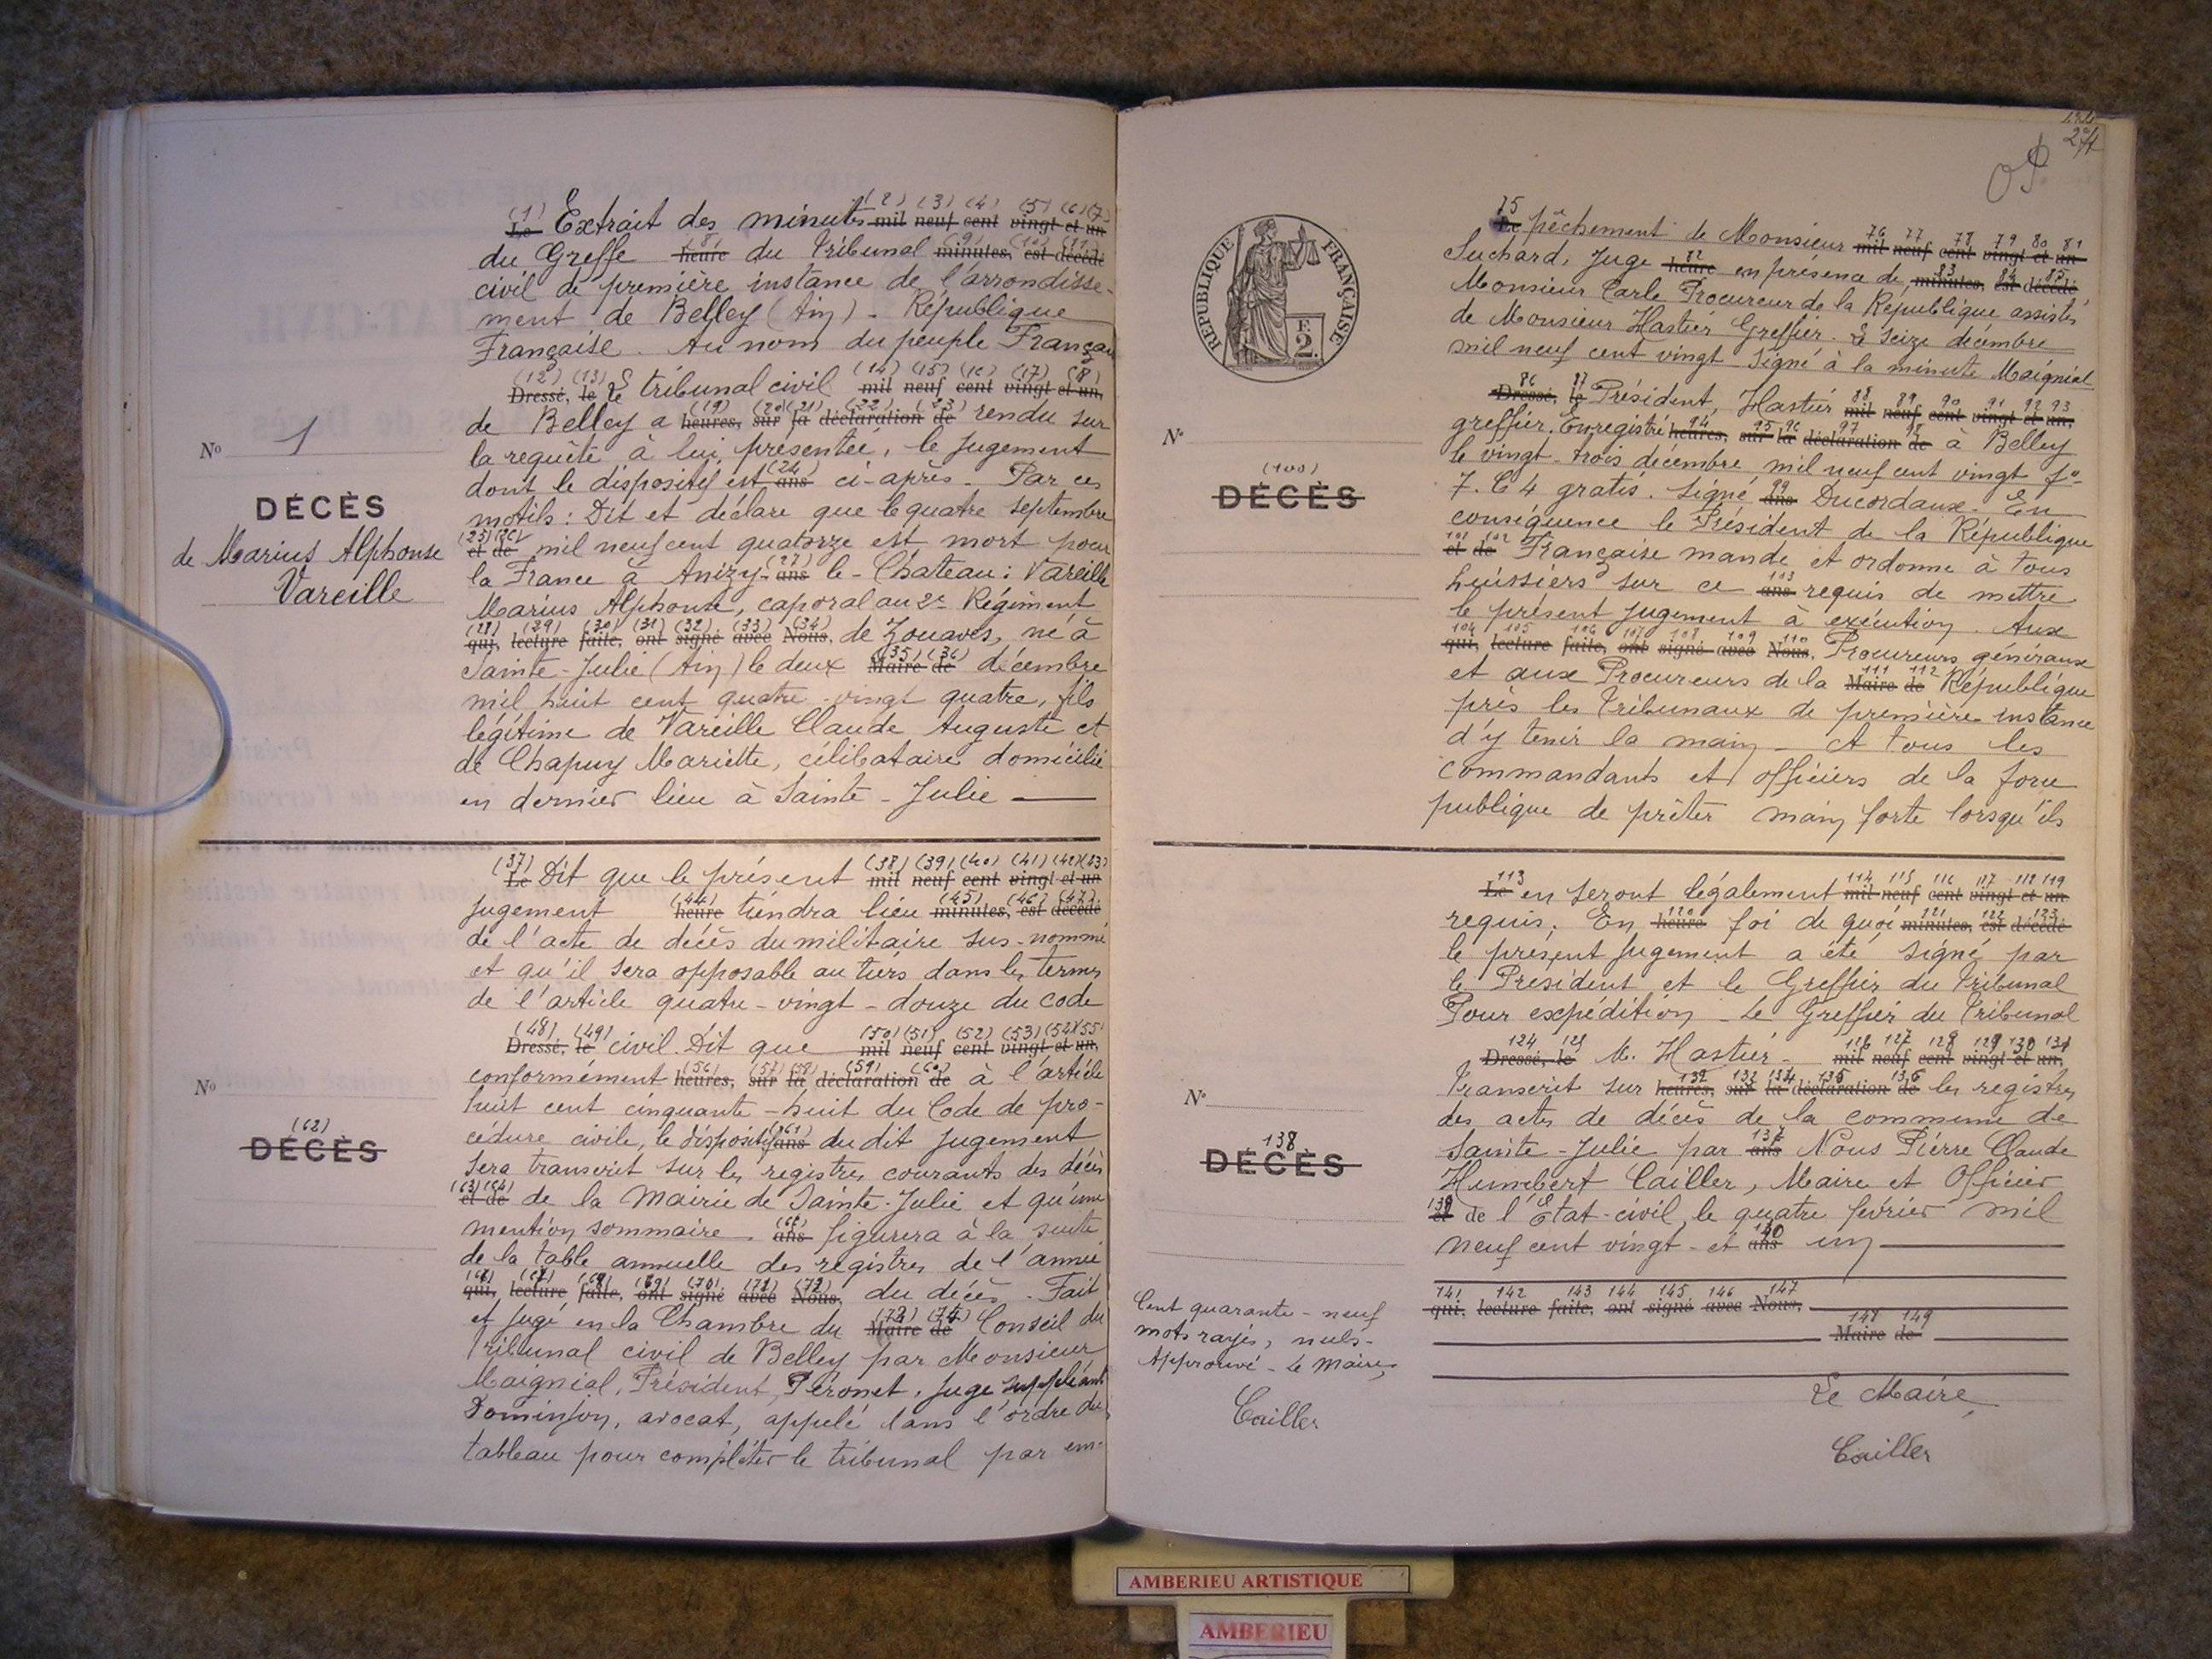 N° 1
DÉCÈS
de Marius Alphonse
Vareille
(1) (2) (3) (4) (5) (6) (7)
Le Extrait des minutes mil neuf cent vingt et un
(8) (9) (10) (11)
du Greffe heure du Tribunal minutes, est décédé
civil de première instance de l'arrondisse-
ment de Belley (Ain) - République
Française. Au nom du peuple Français
(12) (13) (14) (15) (16) (17) (18)
Dressé, le Le tribunal civil mil neuf cent vingt et un,
(19) (20) (21) (22) (23)
de Belley a heures, sur la déclaration de rendu sur
la requête à lui présentée, le jugement
(24)
dont le dispositif est ans ci-après. Par ces
motifs : Dit et déclare que le quatre septembre
(25) (26)
et de mil neuf cent quatorze est mort pour
(27)
la France à Anizy- ans le-Chateau : Vareille
Marius Alphonse, caporal au 2e Régiment
(28) (29) (30) (31) (32) (33) (34)
qui, lecture faite, ont signé avec Nous, de Zouaves, né à
(35) (36)
Sainte-Julie (Ain) le deux Maire de décembre
mil huit cent quatre-vingt quatre, fils
légitime de Vareille Claude Auguste et
de Chapuy Mariette, célibataire domicilié
en dernier lieu à Sainte-Julie
N°
(62)
DÉCÈS
(37) (38) (39) (40) (41) (42) (43)
Le Dit que le présent mil neuf cent vingt et un
(44) (45) (46) (47)
jugement heure tiendra lieu minutes, est décédé
de l'acte de décès du militaire sus-nommé
et qu'il sera opposable au tiers dans les termes
de l'article quatre-vingt-douze du code
(48) (49) (50) (51) (52) (53) (54) (55)
Dressé, le civil. Dit que mil neuf cent vingt et un,
(56) (57) (58) (59) (60)
conformément heures, sur la déclaration de à l'article
huit cent cinquante-huit du Code de pro-
(61)
cédure civile, le dispositif ans du dit jugement
sera transcrit sur les registres courants des décès
(63) (64)
et de de la Mairie de Sainte-Julie et qu'une
mention sommaire ans figurera à la suite
de la table annuelle des registres de l'année
qui, lecture faite, ont signé avec Nous, du décès. Fait
et jugé en la Chambre du Maire de Conseil du
Tribunal civil de Belley par Monsieur
Maignial, Président, Péronet, juge suppléant
Dominjon, avocat, appelé dans l'ordre du
tableau pour compléter le tribunal par em-
274
RÉPUBLIQUE FRANÇAISE
F.
2.
N°
(100)
DÉCÈS
75 76 77 78 79 80 81
Le pêchement de Monsieur mil neuf cent vingt et un
82 83 84 85
Suchard, Juge heure en présence de minutes, est décédé
Monsieur Carle Procureur de la République assistés
de Monsieur Hastier Greffier. Le seize décembre
mil neuf cent vingt. Signé à la minute Maignial
86 87 88 89 90 91 92 93
Dressé, le Président, Hastier mil neuf cent vingt et un,
94 95 96 97 98
greffier. Enregistré heures, sur la déclaration de à Belley
le vingt-trois décembre mil neuf cent vingt fo
99
7. C 4 gratis. Signé ans Ducordaux. En
conséquence le Président de la République
101 102
et de Française mande et ordonne à tous
103
huissiers sur ce ans requis de mettre
le présent jugement à exécution. Aux
104 105 106 107 108 109 110
qui, lecture faite, ont signé avec Nous, Procureurs généraux
111 112
et aux Procureurs de la Maire de République
près les Tribunaux de première instance
d'y tenir la main - A tous les
commandants et officiers de la force
publique de prêter main forte lorsqu'ils
N°
138
DÉCÈS
113 114 115 116 117 118 119
Le en seront légalement mil neuf cent vingt et un
120 121 122 123
requis. En heure foi de quoi minutes, est décédé
le présent jugement a été signé par
le Président et le Greffier du Tribunal
Pour expédition - Le Greffier du Tribunal
124 125 126 127 128 129 130 131
Dressé, le M. Hastier - mil neuf cent vingt et un,
Transcrit sur heures, sur la déclaration de les registres
des actes de décès de la commune de
137
Sainte-Julie par ans Nous Pierre Claude
Humbert Cailler, Maire et Officier
139
et de l'Etat-civil, le quatre février mil
140
neuf cent vingt-et ans un
141 142 143 144 145 146 147
qui, lecture faite, ont signé avec Nous,
148 149
Maire de
Cent quarante-neuf
mots rayés, nuls-
Approuvé - Le Maire,
Cailler
Le Maire,
Cailler
AMBERIEU ARTISTIQUE
AMBERIEU